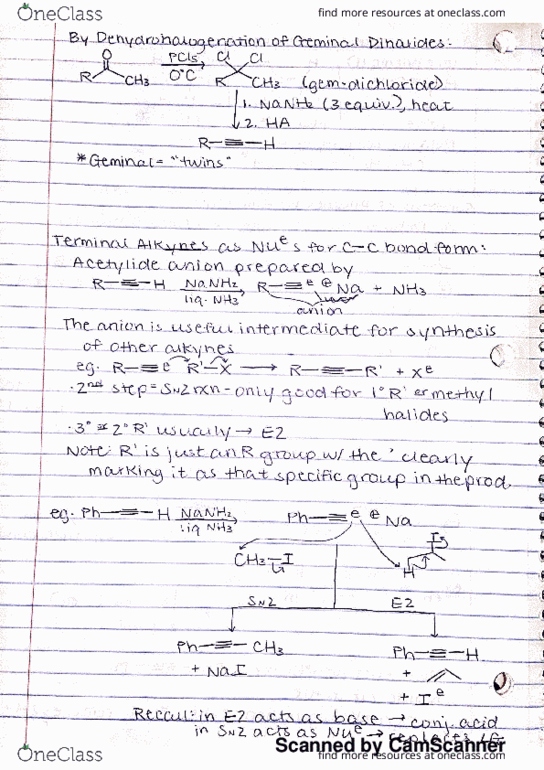 OneClass
find more resources at oneclass.com
By Dehydrohalogenation of Geminal Dihalides:
O PCl5 Cl Cl
R CH3 0°C R CH3 (gem-dichloride)
1. NaNH2 (3 equiv.), heat
2. HA
R-≡-H
*Geminal = "twins"
Terminal Alkynes as Nu⊖s for C-C bond form:
Acetylide anion prepared by
R-≡-H NaNH2 R-≡⊖ ⊕Na + NH3
liq. NH3
anion
The anion is useful intermediate for synthesis
of other alkynes
eg. R-≡⊖ R'-X → R-≡-R' + X⊖
·2nd step = SN2 rxn - only good for 1° R' or methyl
halides
·3° 2° R' usually → E2
Note: R' is just an R group w/ the ' clearly
marking it as that specific group in the prod.
eg. Ph-≡-H NaNH2 Ph-≡⊖ ⊕Na
liq NH3
CH3-I I
H
SN2 E2
Ph-≡-CH3 Ph-≡-H
+ NaI +
+ I⊖
Recall: in E2 acts as base → conj. acid
in SN2 acts as Nu⊖ →
Scanned by CamScanner
OneClass
find more resources at oneclass.com